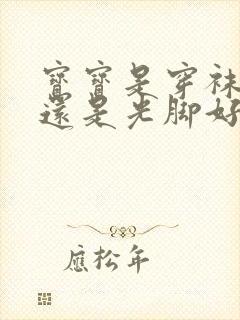 寶寶是穿袜
還是光脚好
應松年